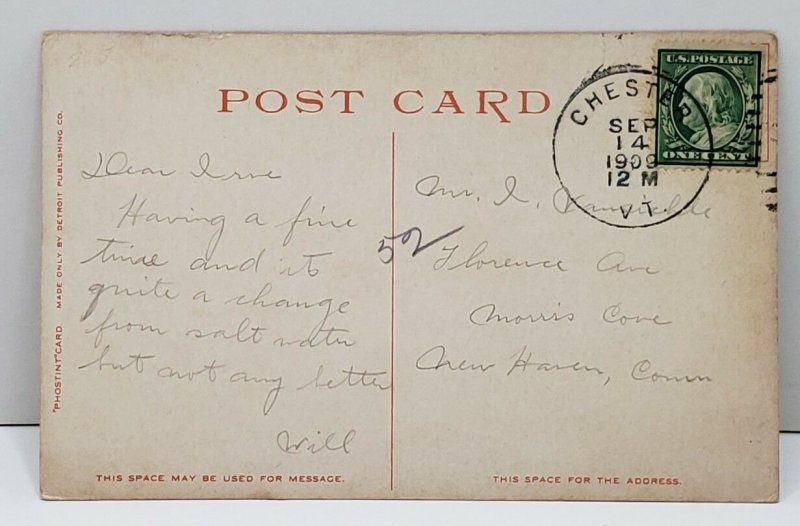 POST CARD
CHESTER
SEP
14
1909
12 M
VT
U.S. POSTAGE
ONE CENT
"PHOSTINT" CARD. MADE ONLY BY DETROIT PUBLISHING CO.
Dear Irve
Having a fine
time and its
quite a change
from salt water
but not any better
Will
52
Mr. I.
Florence Ave
Morris Cove
New Haven, Conn
THIS SPACE MAY BE USED FOR MESSAGE.
THIS SPACE FOR THE ADDRESS.